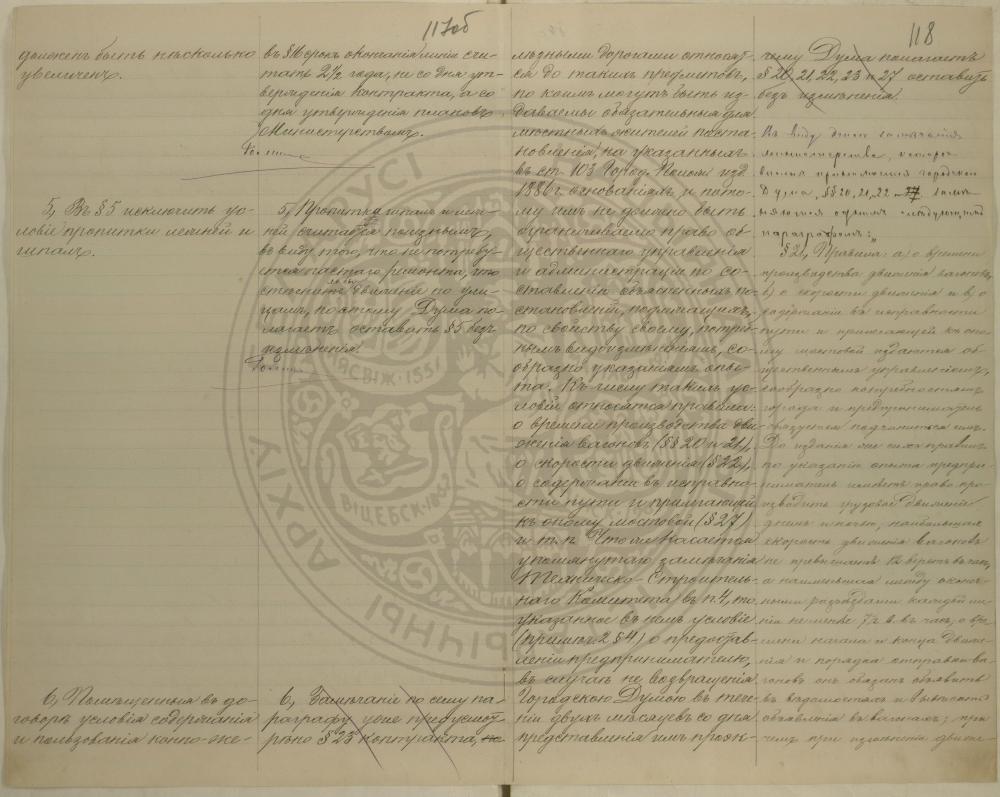 117об
долженъ быть нѣсколько
увеличенъ.
5, Въ §5 исключить ус-
ловіе пропитки лежней и
шпалъ.
6, Помѣщенныя въ до-
говоръ условія содержанія
и пользованія конно-же-
въ §16 срокъ окончанія линіи счи-
тать 2½ года, не со дня ут-
вержденія контракта, а со
дня утвержденія плановъ
Министерствомъ.
5, Пропитка шпалъ и леж-
ней считается полезнымъ,
въ виду того, что не потребу-
ется частаго ремонта, что
стѣснитъ движеніе по ули-
цамъ, по этому Дума по-
лагаетъ оставить §5 безъ
измѣненія.
6, Замѣчаніе по сему па-
раграфу уже предусмот-
рѣно §23 контракта, не
118
лѣзными дорогами относят-
ся до такихъ предметовъ,
по коимъ могутъ быть из-
даваемы обязательныя для
мѣстныхъ жителей поста-
новленія, на указанныхъ
въ ст. 103 Город. Полож. изд.
1886 г. основаніяхъ, и пото-
му имъ не должно быть
ограничиваемо право об-
щественнаго управленія
и администраціи по со-
ставленію объясненныхъ по-
становленій, подлежащихъ,
по свойству своему, потреб-
нымъ видоизмѣненіямъ, со-
образно указаніямъ опы-
та. Къ числу такихъ ус-
ловій относятся правила
о времени производства дви-
женія вагоновъ (§§ 20 и 21),
о скорости движенія (§ 22),
о содержаніи въ исправно-
сти пути и прилегающей
къ оному мостовой (§ 27)
и т. п. Что же касается
упомянутаго замѣчанія
Технически-Строитель-
наго Комитета въ п. 4, то
указанное въ немъ условіе
(примѣч. 2 § 4) о предостав-
леніи предпринимателю,
въ случаѣ не возвращенія
Городскою Думою въ тече-
ніи двухъ мѣсяцевъ со дня
представленія имъ проэк-
чему Дума полагаетъ
§ 20, 21, 22, 23 и 27 оставить
безъ измѣненія.
Въ виду этого замѣчанія
министерства,
Дума, §§ 20, 21, 22 и 27 замѣ-
няются однимъ слѣдующимъ
параграфомъ:
§ 21, Правила: а) о времени
производства движенія вагоновъ,
б) о скорости движенія и в) о
содержаніи въ исправности
пути и прилегающей къ оно-
му мостовой издаются об-
щественнымъ управленіемъ,
сообразно потребностямъ
города и предприниматель
обязуется подчиниться имъ.
До изданія же сихъ правилъ
по указанію опыта предпри-
ниматель имѣетъ право про-
изводить движеніе
днемъ и ночью, наибольшая
скорость движенія вагоновъ
не превышаетъ 12 верстъ въ часъ,
а наименьшая между
разъѣздами каждой ли-
ніи не менѣе 7½ в. въ часъ, о вре-
мени начала и конца движе-
нія и порядка отправки ва-
гоновъ онъ обязанъ объявить
въ вѣдомостяхъ и вывѣсить
объявленія въ вагонахъ; при
чемъ при измѣненіи движе-